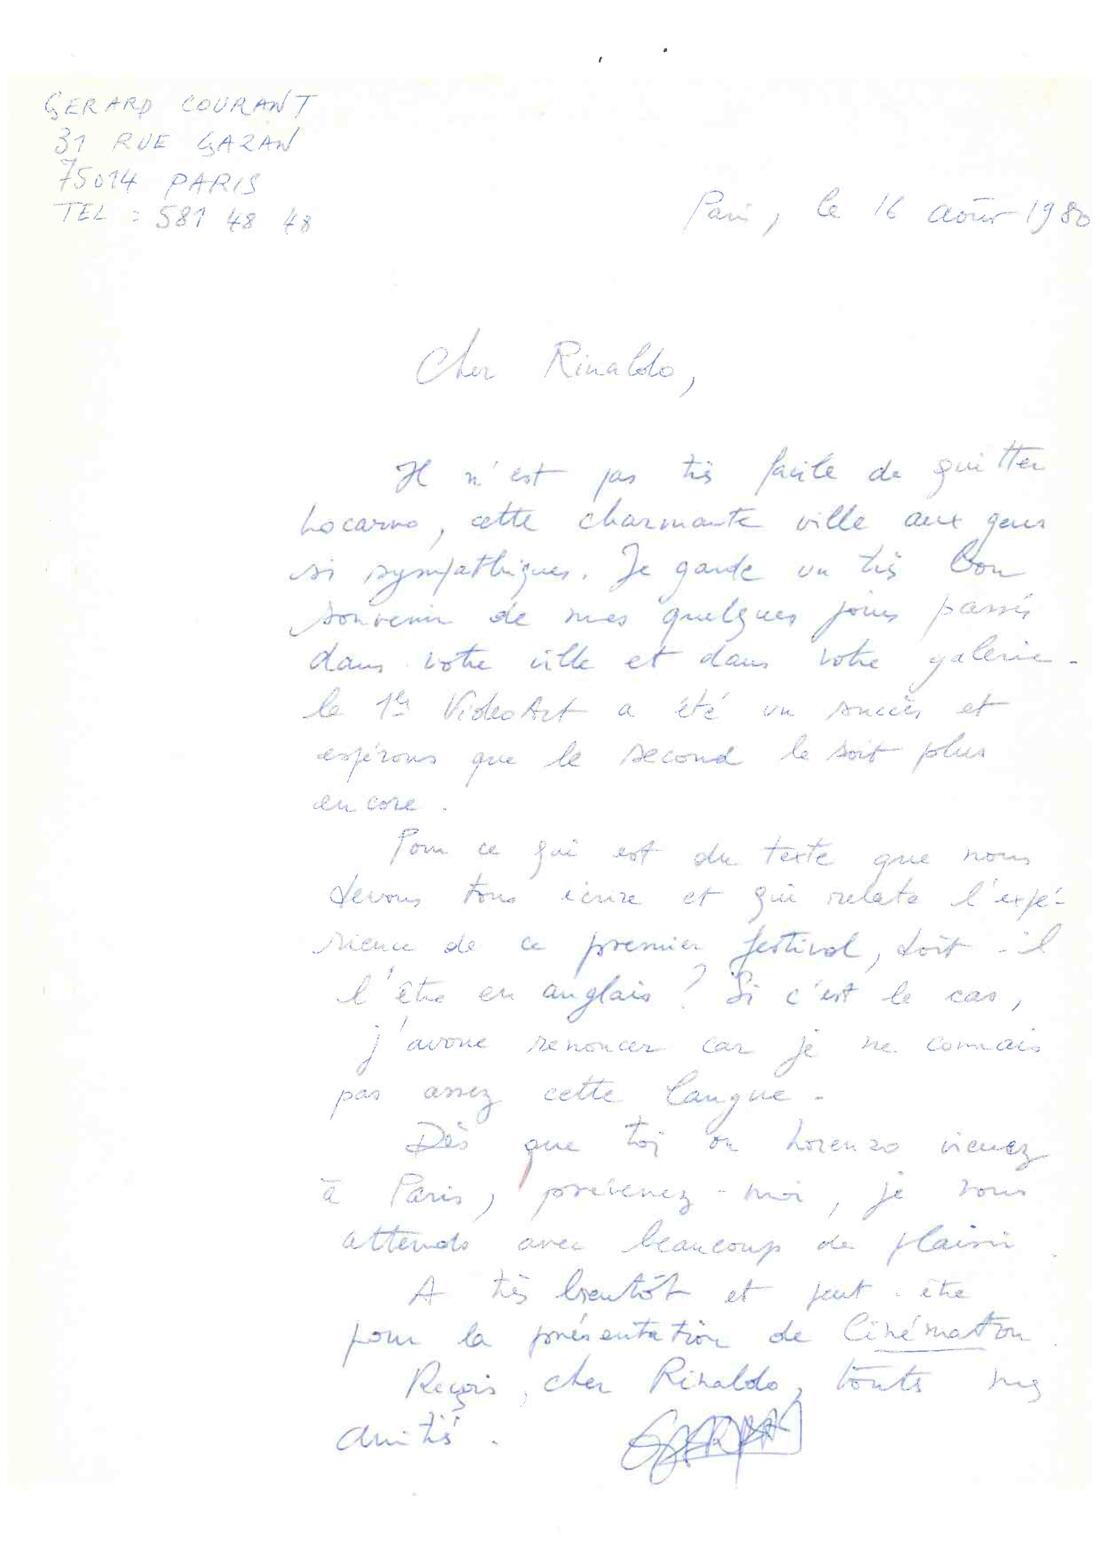 GERARD COURANT
31 RUE GAZAN
75014 PARIS
TEL : 581 48 48
Paris, le 16 août 1980
Cher Rinaldo,
Il n'est pas très facile de quitter
Locarno, cette charmante ville aux gens
si sympathiques. Je garde un très bon
souvenir de mes quelques jours passés
dans votre ville et dans votre galerie.
Le 1er VideoArt a été un succès et
espérons que le second le soit plus
encore.
Pour ce qui est du texte que nous
devons tous écrire et qui relate l'expé-
rience de ce premier festival, doit-il
l'être en anglais ? Si c'est le cas,
j'avoue renoncer car je ne connais
pas assez cette langue.
Dès que toi ou Lorenzo venez
à Paris, prévenez-moi, je vous
attends avec beaucoup de plaisir.
A très bientôt et peut-être
pour la présentation de Cinématon.
Reçois, cher Rinaldo, toutes mes
amitiés.